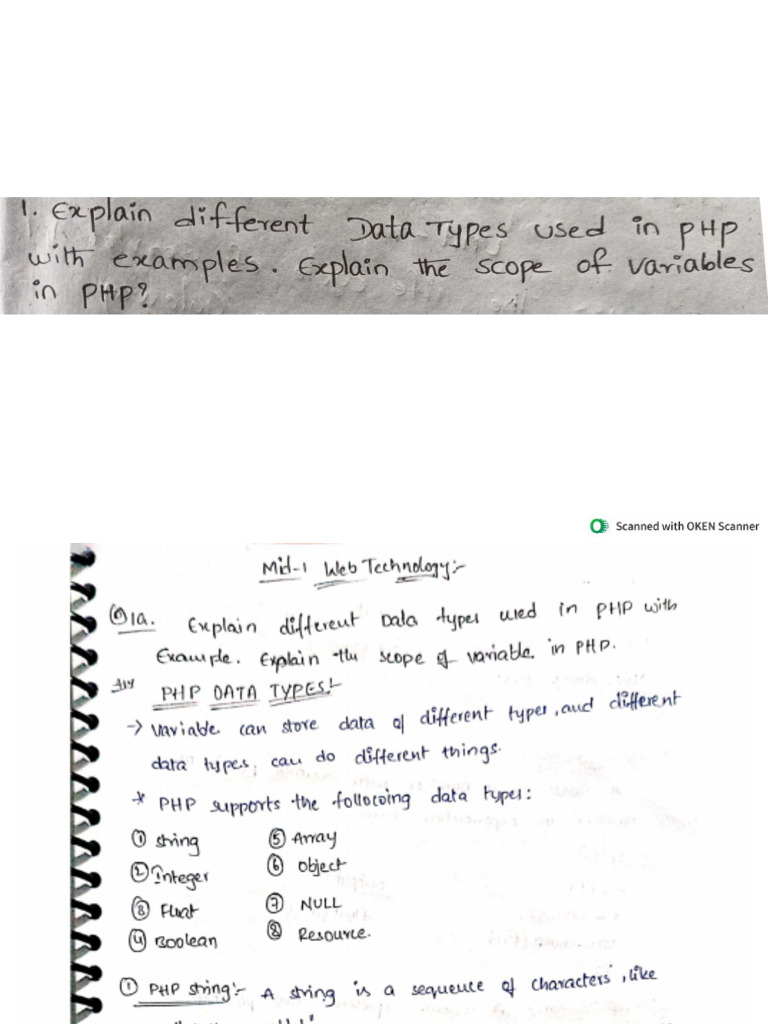 1. Explain different Data Types used in PHP
with examples. Explain the scope of variables
in PHP?
Scanned with OKEN Scanner
Mid-1 Web Technology:-
1a. Explain different Data types used in PHP with
Example. Explain the scope of variable in PHP.
PHP DATA TYPES:-
→ Variable can store data of different types, and different
data types, can do different things.
* PHP supports the following data types:
① string ⑤ Array
② Integer ⑥ Object
③ Float ⑦ NULL
④ Boolean ⑧ Resource.
① PHP string:- A string is a sequence of characters, like